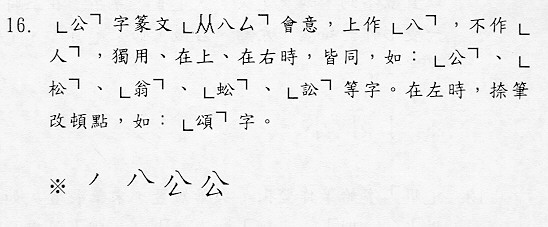 16. ﹂公﹁字篆文﹂从八厶﹁會意，上作﹂八﹁，不作﹂
人﹁，獨用、在上、在右時，皆同，如：﹂公﹁、﹂
松﹁、﹂翁﹁、﹂蚣﹁、﹂訟﹁等字。在左時，捺筆
改頓點，如：﹂頌﹁字。
※ ㇒ 八 公 公